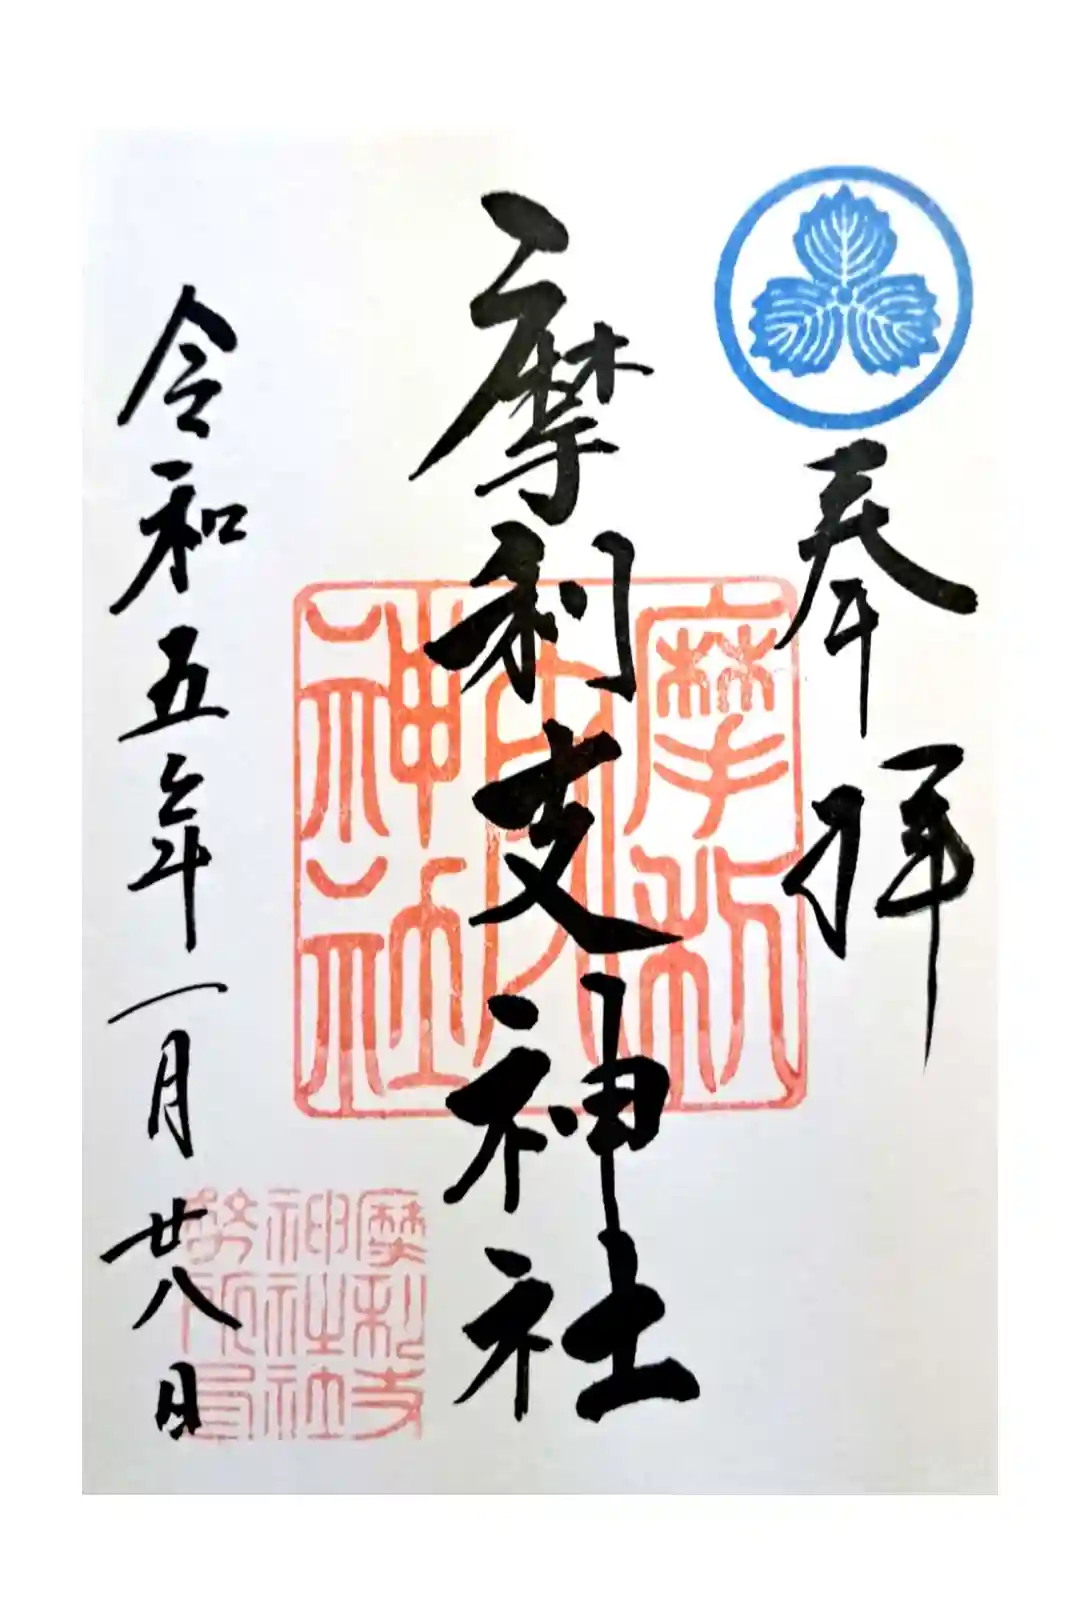 奉拝
摩利支神社
令和五年一月廿八日
摩利支
神社社
務所